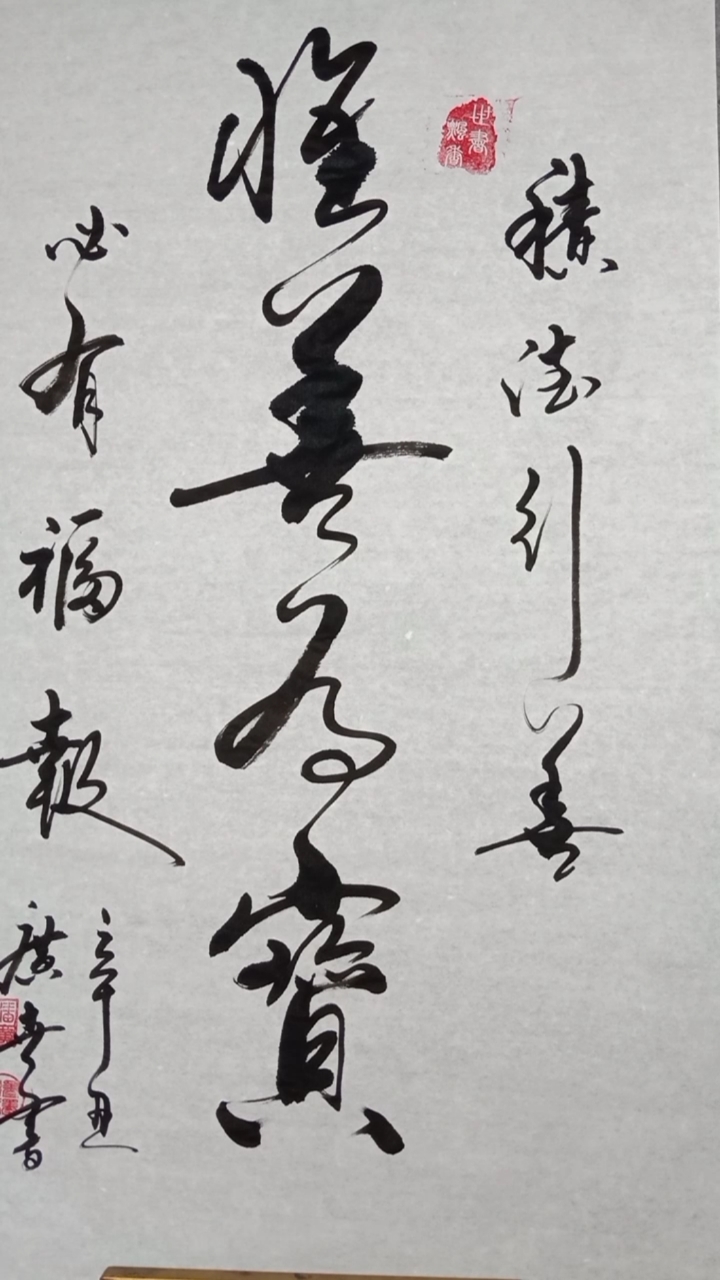 積德行善
惟善為寶
必有福報
辛丑
書